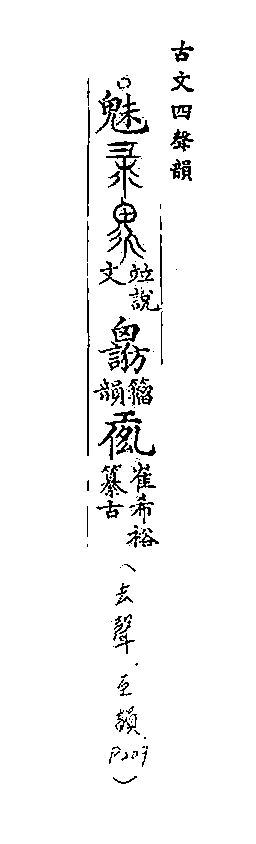 古文四聲韻
魅
竝說文
籀韻
崔希裕纂古
(去聲.至韻.